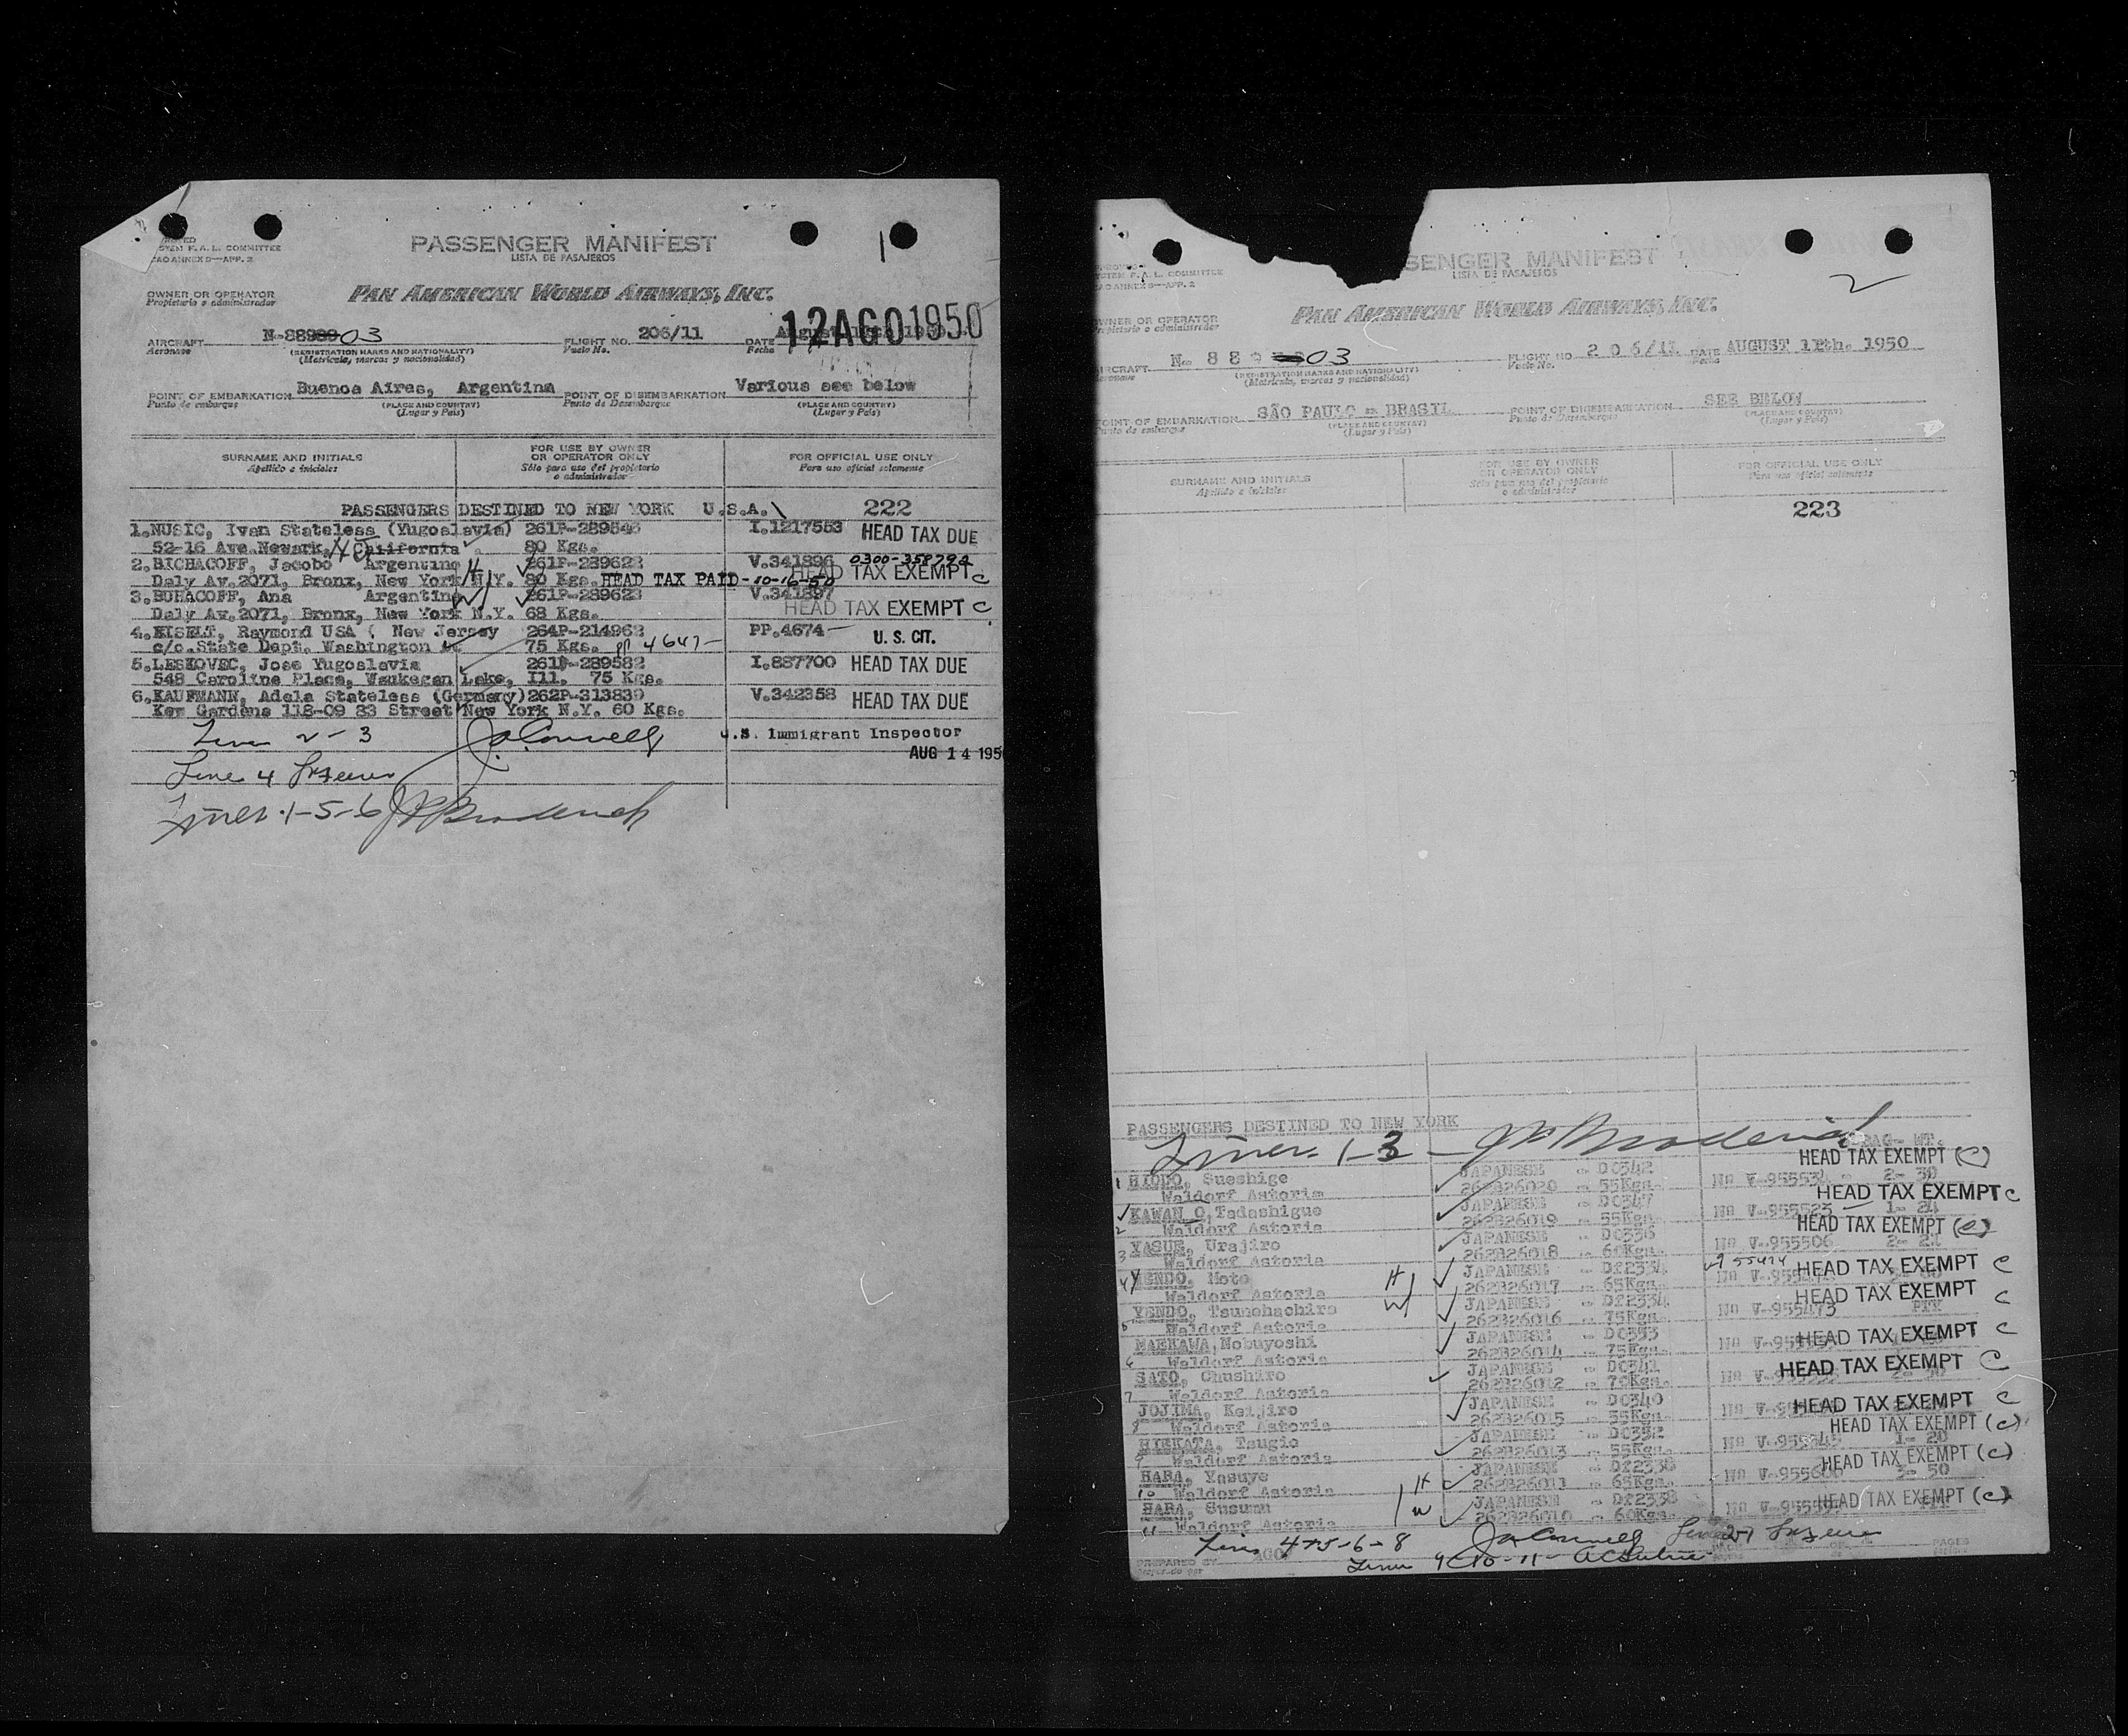 PASSENGER MANIFEST
LISTA DE PASAJEROS
STEM F. A. L. COMMITTEE
CAO ANNEX 9—APP. 2
1
OWNER OR OPERATOR
Propietario o administrador
PAN AMERICAN WORLD AIRWAYS, INC.
AIRCRAFT N-88903
Aeronave
(REGISTRATION MARKS AND NATIONALITY)
(Matrícula, marcas y nacionalidad)
FLIGHT NO. 206/11
Vuelo No.
DATE 12 AGO 1950
Fecha
POINT OF EMBARKATION Buenos Aires, Argentina
Punto de embarque
(PLACE AND COUNTRY)
(Lugar y País)
POINT OF DISEMBARKATION Various see below
Punto de Desembarque
(PLACE AND COUNTRY)
(Lugar y País)
SURNAME AND INITIALS
Apellido e iniciales
FOR USE BY OWNER
OR OPERATOR ONLY
Sólo para uso del propietario
o administrador
FOR OFFICIAL USE ONLY
Para uso oficial solamente
PASSENGERS DESTINED TO NEW YORK U.S.A. 222
1.NUSIC, Ivan Stateless (Yugoslavia) 261P-289546 I.1217553 HEAD TAX DUE
52-16 Ave.Newark, California 80 Kgs.
2.BICHACOFF, Jacobo Argentino H 261P-289622 V.341896 0300-358792
Daly Av.2071, Bronx, New York N.Y. 80 Kgs. HEAD TAX PAID-10-16-50 HEAD TAX EXEMPT C
3.BUHACOFF, Ana Argentina W 261P-289623 V.341897
Daly Av.2071, Bronx, New York N.Y. 68 Kgs. HEAD TAX EXEMPT C
4.EISELT, Raymond USA ( New Jersey 264P-214962 PP.4674 U. S. CIT.
c/o.State Dept. Washington 75 Kgs. pp 4647-
5.LESKOVEC, Jose Yugoslavia 261P-289582 I.887700 HEAD TAX DUE
548 Caroline Place, Waukegan Lake, Ill. 75 Kgs.
6.KAUFMANN, Adela Stateless (Germany) 262P-313839 V.342358 HEAD TAX DUE
Kew Gardens 118-09 83 Street New York N.Y. 60 Kgs.
Lines 2-3 U.S. Immigrant Inspector
AUG 14 195
Line 4
Lines 1-5-6
SENGER MANIFEST
LISTA DE PASAJEROS
STEM F. A. L. COMMITTEE
CAO ANNEX 9—APP. 2
2
OWNER OR OPERATOR
Propietario o administrador
PAN AMERICAN WORLD AIRWAYS, INC.
AIRCRAFT N- 889 03
Aeronave
(REGISTRATION MARKS AND NATIONALITY)
(Matrícula, marcas y nacionalidad)
FLIGHT NO. 206/11
Vuelo No.
DATE AUGUST 11th. 1950
Fecha
POINT OF EMBARKATION SÃO PAULO - BRASIL
Punto de embarque
(PLACE AND COUNTRY)
(Lugar y País)
POINT OF DISEMBARKATION SEE BELOW
Punto de Desembarque
(PLACE AND COUNTRY)
(Lugar y País)
SURNAME AND INITIALS
Apellido e iniciales
FOR USE BY OWNER
OR OPERATOR ONLY
Sólo para uso del propietario
o administrador
FOR OFFICIAL USE ONLY
Para uso oficial solamente
223
PASSENGERS DESTINED TO NEW YORK
Lines 1-3 BAG- WT.
HEAD TAX EXEMPT (C)
1 Sueshige JAPANESE - D0342 No V-955534 2- 30
Waldorf Astoria 262B26020 - 55Kgs. HEAD TAX EXEMPT C
2 KAWAN O,Tadashigue JAPANESE - D0347 No V-955523 1- 21
Waldorf Astoria 262B26019 - 55Kgs. HEAD TAX EXEMPT (C)
3 YASUE, Urajiro JAPANESE - D0336 No V-955506 2- 21
Waldorf Astoria 262B26018 - 60Kgs.
4 YENDO, Moto H JAPANESE - Df2334 HEAD TAX EXEMPT C
Waldorf Astoria 262B26017 - 65Kgs.
5 YENDO, Tsunehachiro W JAPANESE - Df2334 No V-955473 HEAD TAX EXEMPT C
Waldorf Astoria 262B26016 - 75Kgs.
6 MAEKAWA,Nobuyoshi JAPANESE - D0353 HEAD TAX EXEMPT C
Waldorf Astoria 262B26014 - 75Kgs.
7 SATO, Chushiro JAPANESE - D0341 HEAD TAX EXEMPT C
Waldorf Astoria 262B26012 - 70Kgs.
8 JOJIMA, Keijiro JAPANESE - D0340 HEAD TAX EXEMPT C
Waldorf Astoria 262B26015 - 55Kgs.
9 HIEKATA, Tsugio JAPANESE - D0352 HEAD TAX EXEMPT (C)
Waldorf Astoria 262B26013 - 55Kgs. 1- 20
10 HARA, Yasuye H JAPANESE - Df2338 HEAD TAX EXEMPT (C)
Waldorf Astoria 262B26011 - 65Kgs. 3- 50
11 HARA, Susumu W JAPANESE - Df2338 HEAD TAX EXEMPT (C)
Waldorf Astoria 262B26010 - 60Kgs.
Lines 4-5-6-8
Lines 9-10-11
PREPARED BY
Preparado por
PAGES